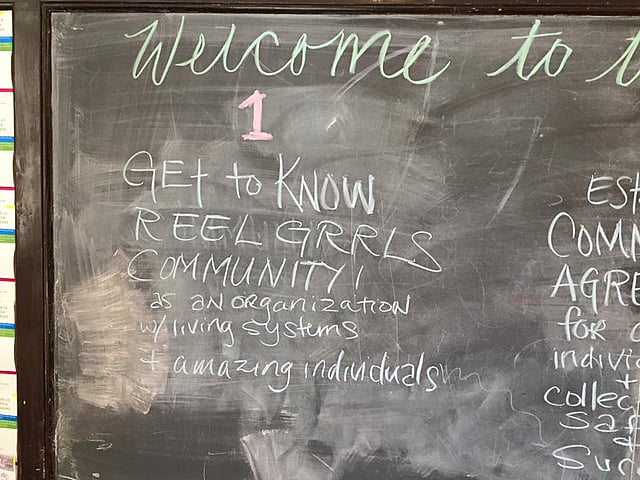 Welcome to t
1
GEt to KNOW
REEL GRRLS
COMMUNITY!
as an organization
w/ living systems
+ amazing individuals
Est
COMM
AGRE
for
indivi
+
collec
Saf
Suc